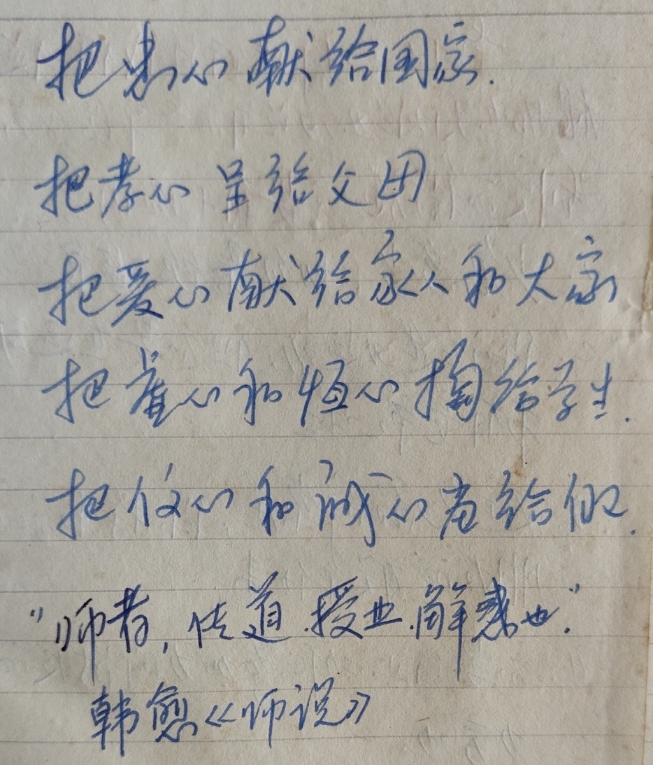 把忠心献给国家.
把孝心呈给父母
把爱心献给家人和大家
把心和恒心掏给学生.
把心和诚心给他.
"师者,传道.授业.解惑也."
韩愈《师说》